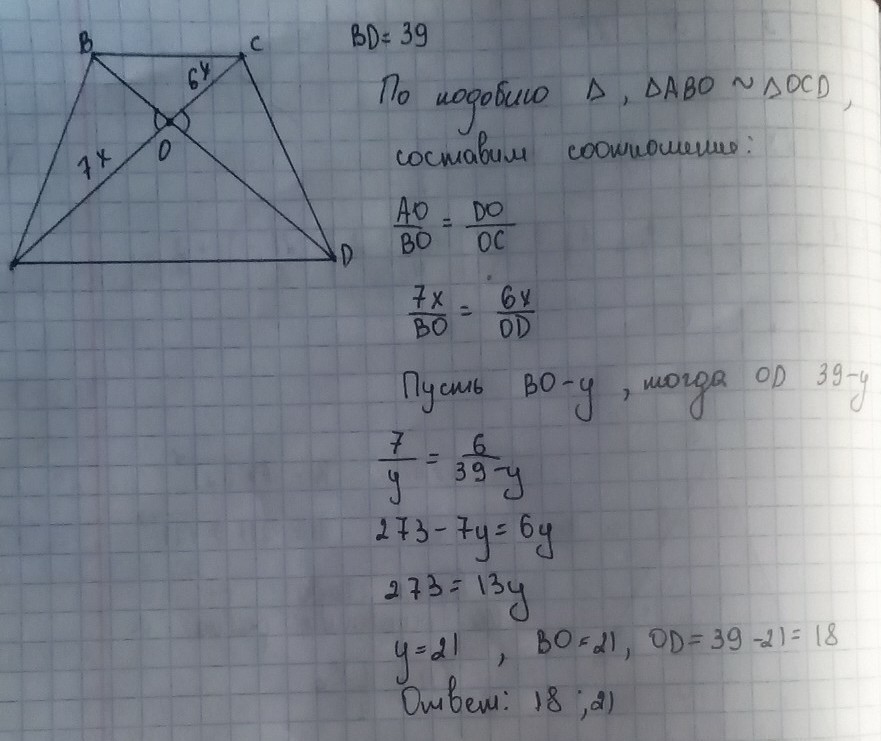 B C
6x
7x
O
D
BD = 39
По подобию Δ, ΔABO ~ ΔOCD,
составим соотношение:
AO/BO = DO/OC
7x/BO = 6x/OD
Пусть BO - y, тогда OD 39-y
7/y = 6/39-y
273 - 7y = 6y
273 = 13y
y = 21 , BO = 21, OD = 39 - 21 = 18
Ответ: 18 ; 21